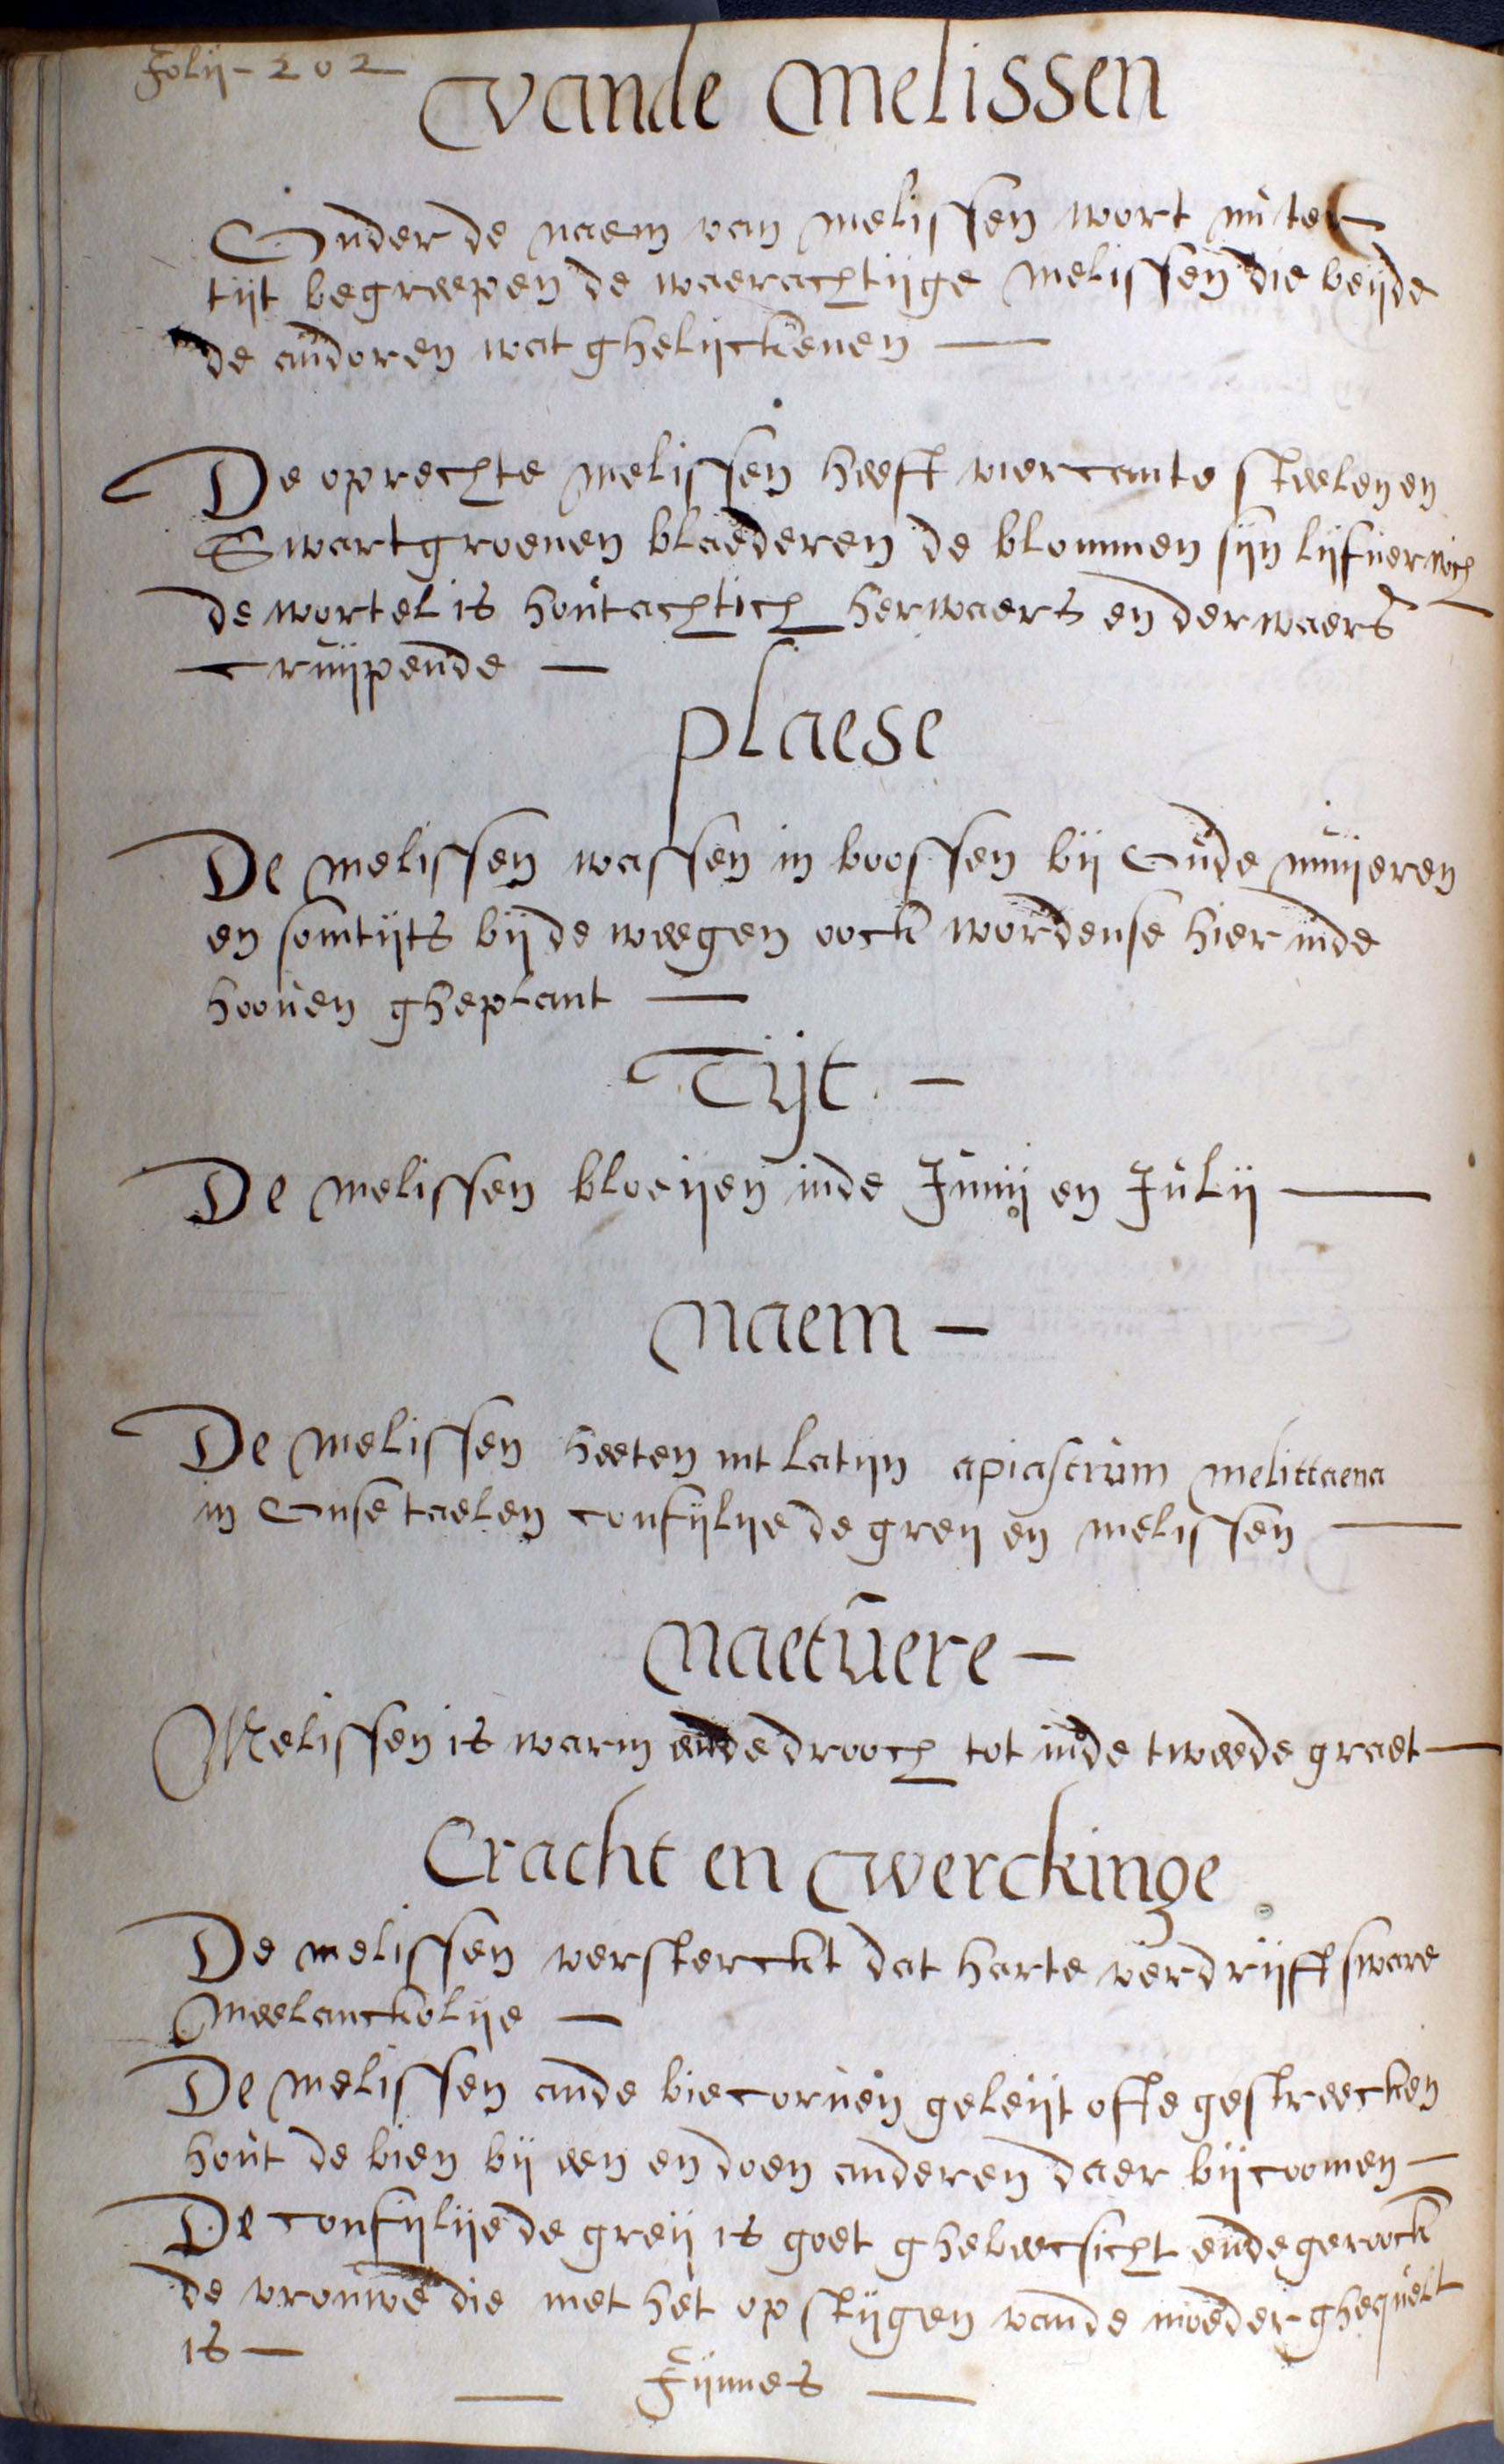 Folij - 202
Vande Melissen
Onder de naem van melissen wort nu ter
tijt begreepen de waerachtijge melissen die beijde
de anderen wat ghelijckenen
De oprechte melissen heeft viercante steelen en
Swartgroenen blaederen de blommen sijn lijfverwich
de wortel is houtachtich herwaers en derwaers
cruijpende
plaese
De melissen wassen in boossen bij Oude muijeren
en somtijts bij de weegen oock wordense hier inde
hooven gheplant
Tijt
De melissen bloeijen inde Junij en Julij
Naem
De melissen heeten int latijn apiastrum melittaena
in Onse taelen confijlije de greij en melissen
Naetuere
Melissen is warm ende drooch tot inde tweede graet
Cracht en Werckinge
De melissen versterckt dat harte verdrijft sware
Meelanckolije
De melissen ande biecorven geleijt ofte gestreecken
hout de bien bij een en doen anderen daer bij coomen
De confijlije de greij is goet ghebeesicht ende geroock
de vrouwe die met het op stijgen vande moeder ghequelt
is
Fijnnes